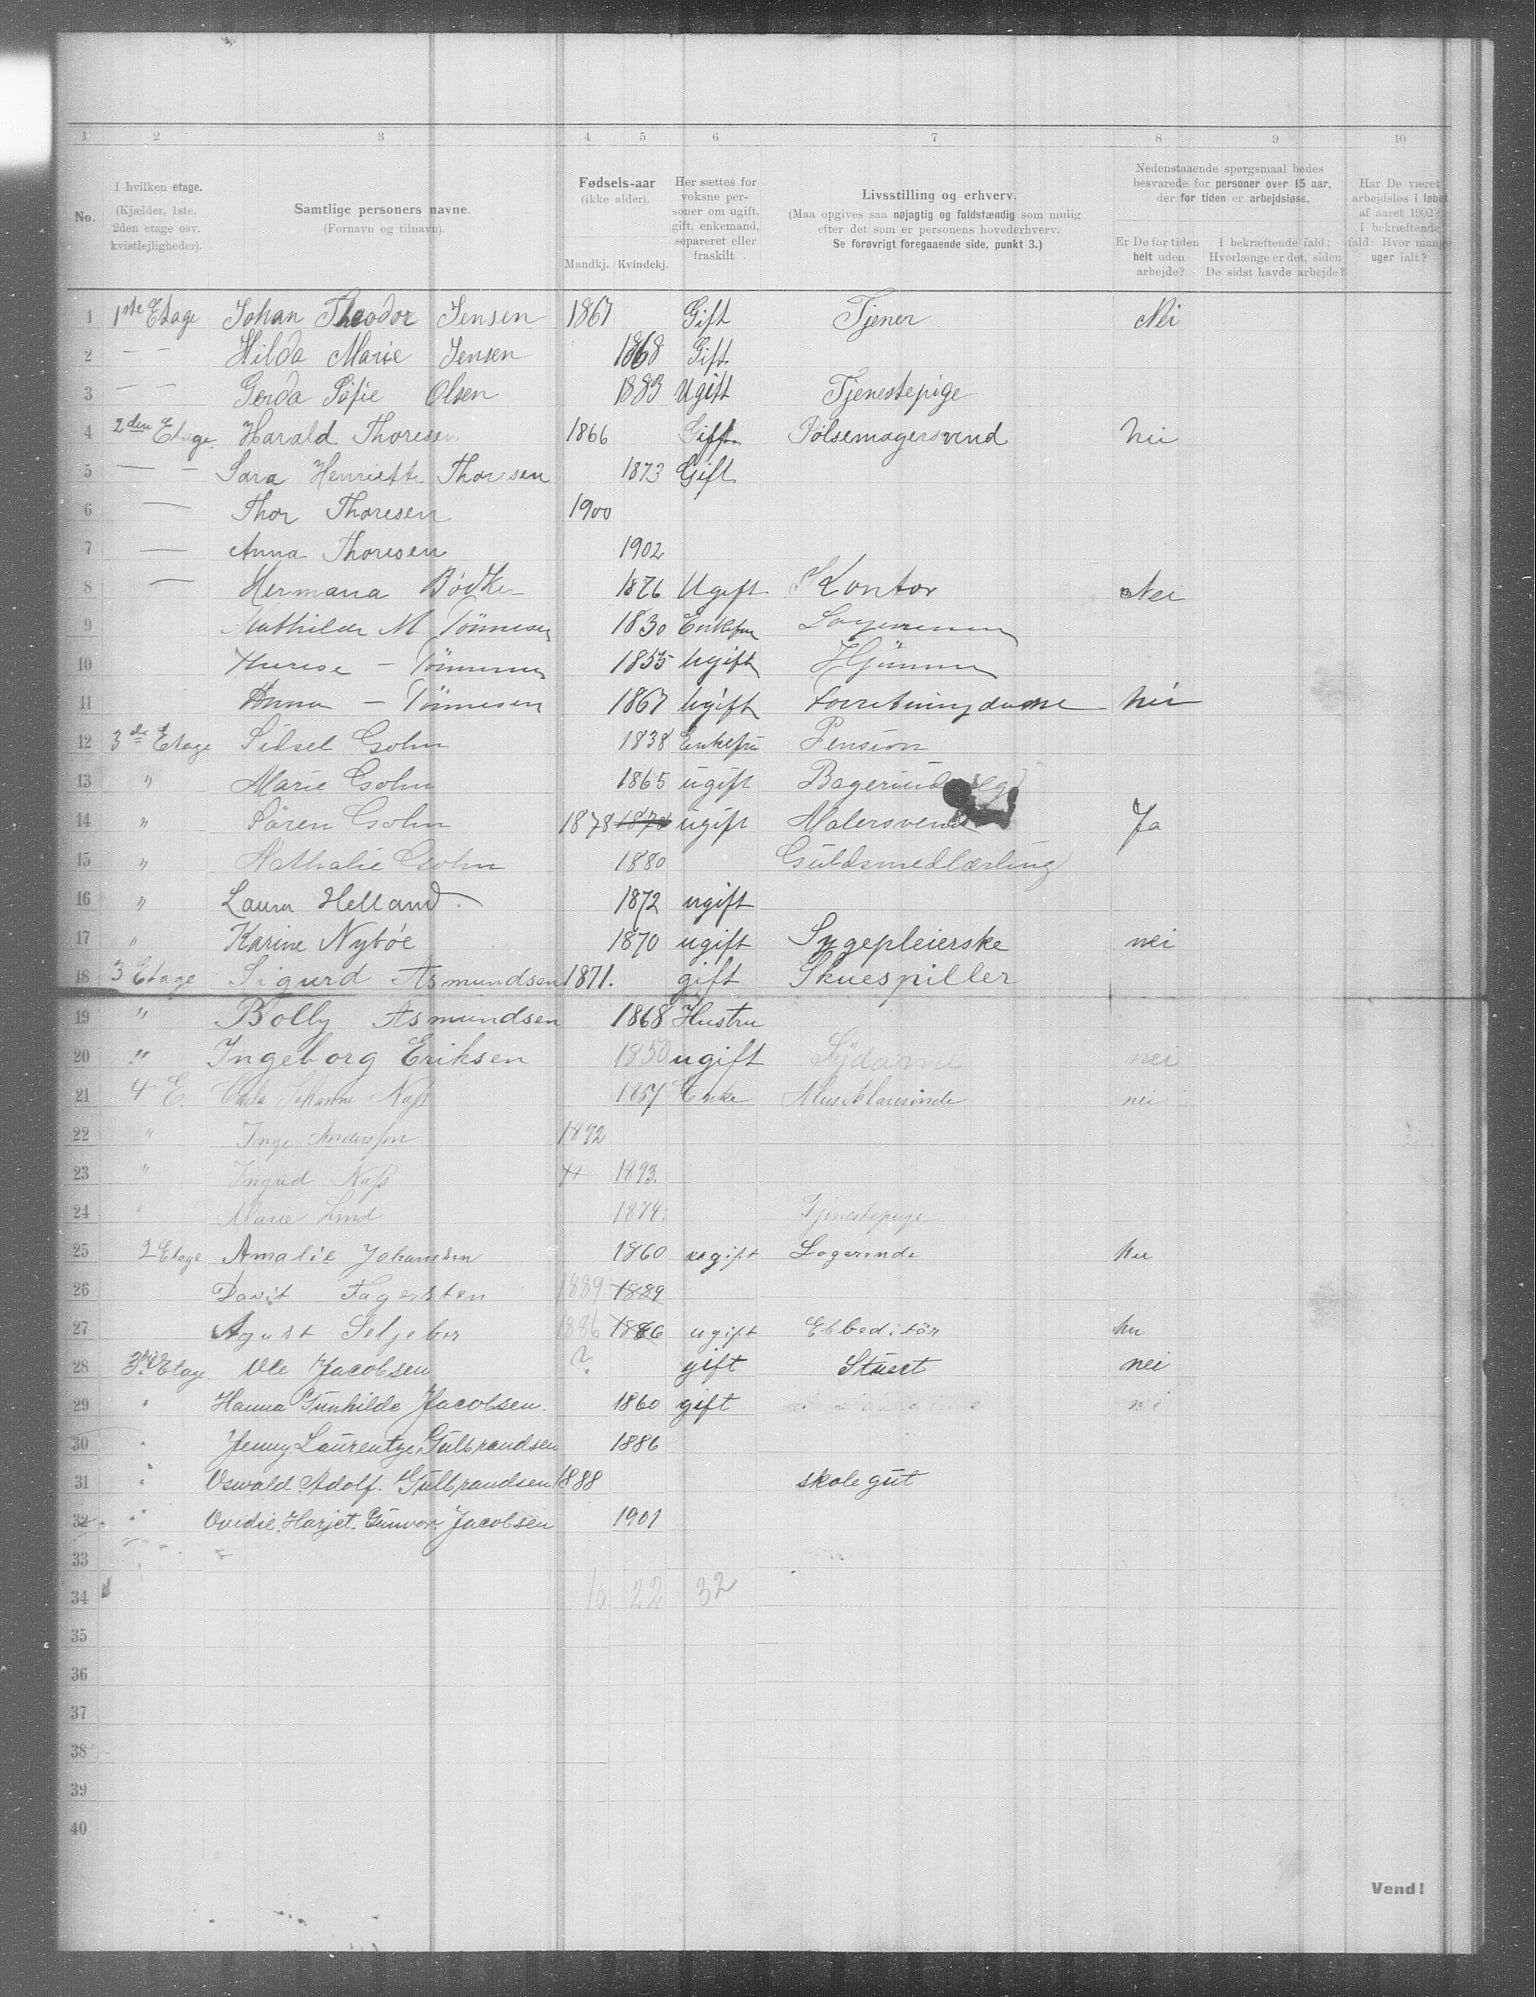 1 2 3 4 5 6 7 8 9 10
No.
I hvilken etage.
(Kjælder, 1ste.
2den etage osv.
kvistlejligheder).
Samtlige personers navne.
(Fornavn og tilnavn).
Fødsels-aar
(ikke alder).
Mandkj. Kvindekj.
Her sættes for
voksne per-
soner om ugift,
gift, enkemand,
separeret eller
fraskilt.
Livsstilling og erhverv.
(Maa opgives saa nøjagtig og fuldstændig som mulig
efter det som er personens hovederhverv.
Se forøvrigt foregaaende side, punkt 3.)
Nedenstaaende spørgsmaal bedes
besvarede for personer over 15 aar,
der for tiden er arbejdsløse.
Er De for tiden
helt uden
arbejde?
I bekræftende fald:
Hvorlænge er det, siden
De sidst havde arbejde?
Har De været
arbejdsløs i løbet
af aaret 1902?
I bekræftende
fald: Hvor mange
uger ialt?
1 1ste Etage Johan Theodor Jensen 1867 Gift Tjener Nei
2 — — Hilda Marie Jensen 1868 Gift
3 — — Gerda Sofie Olsen 1883 Ugift Tjenestepige
4 2den Etage Harald Thoresen 1866 Gift Pølsemagersvend nei
5 — — Sara Henriette Thoresen 1873 Gift
6 — Thor Thoresen 1900
7 — Anna Thoresen 1902
8 — Hermana Bødker 1876 Ugift Kontor Nei
9 Mathilde M Tönnesen 1830 Enkefru
10 Therese — Tönnesen 1855 Ugift
11 Anna — Tönnesen 1867 Ugift Forretningsdame nei
12 3de Etage Sidsel Gohn 1838 Enkefru Pension
13 " Marie Gohn 1865 ugift
14 " Sören Gohn 1878 1878 ugift Malersvend Ja
15 " Nathalie Gohn 1880 Guldsmedlærling
16 " Laura Helland. 1872 ugift
17 " Karine Nybóe 1870 ugift Sygepleierske nei
18 3 Etage Sigurd Asmundsen 1871. gift Skuespiller
19 " Bolly Asmundsen 1868 Hustru
20 " Ingeborg Eriksen 1850 ugift Sydame nei
21 4 E. Johanne Nass 1857 Enke Musiklærerinde nei
22 " Inge Anderssen 1892
23 " Ingrid Nass 1893.
24 " Marie Lind 1874. Tjenestepige
25 2 Etage Amalie Johansen 1860 ugift Logerende
26 Davit Fagersten 1889 1889
27 Agust Seljeber 1886 1886 ugift Ekbeditör
28 3die Etage Ole Jacobsen ? gift Stuert nei
29 " Hanna Gunhilde Jacobsen. 1860 gift
30 " Jenny Laurentze Gulbrandsen 1886
31 " Oswald Adolf. Gulbrandsen 1888 skolegut
32 " Ovidie. Harjet. Gunvor. Jacobsen 1901
33
34 10 22 32
35
36
37
38
39
40
Vend!